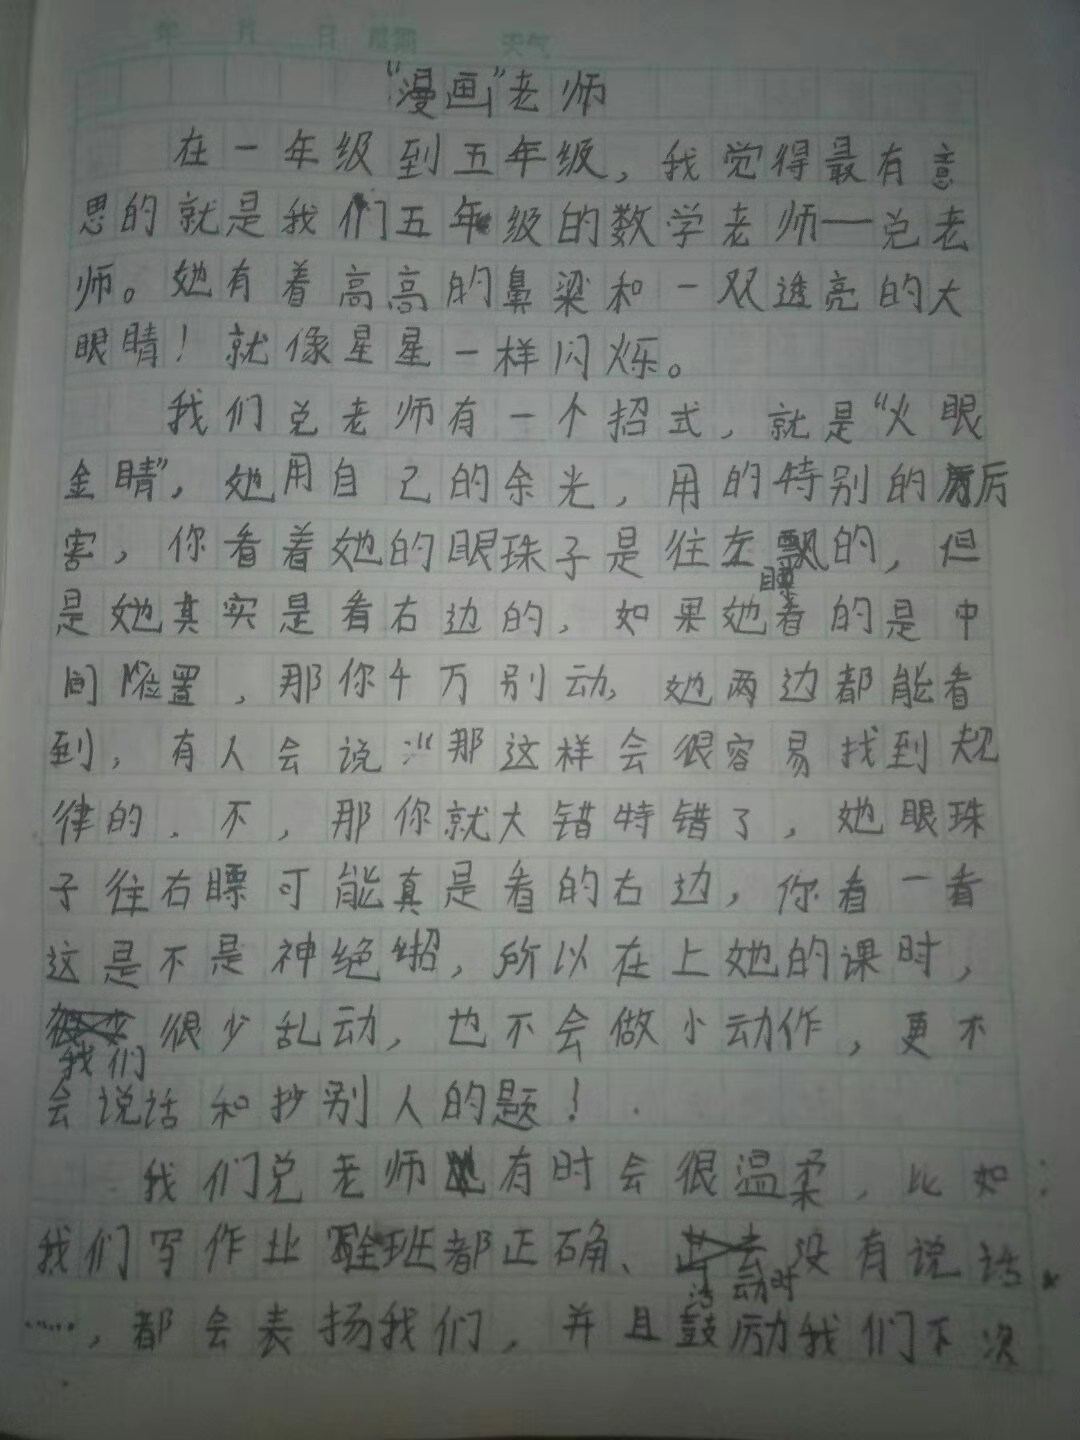 年 月 日 星期 天气
“漫画”老师
在一年级到五年级，我觉得最有意
思的就是我们五年级的数学老师——兑老
师。她有着高高的鼻梁和一双透亮的大
眼睛！就像星星一样闪烁。
我们兑老师有一个招式，就是“火眼
金睛”，她用自己的余光，用的特别的厉
害，你看着她的眼珠子是往左瞟的，但
是她真实是看右边的，如果她看的是中
间位置，那你千万别动，她两边都能看
到，有人会说：“那这样会很容易找到规
律的．不，那你就大错特错了，她眼珠
子往右瞟可能真是看的右边，你看一看
这是不是神绝招，所以在上她的课时，
我们很少乱动，也不会做小动作，更不
会说话和抄别人的题！
我们兑老师有时会很温柔，比如：
我们写作业全班都正确、活动时没有说话
……，都会表扬我们，并且鼓励我们下次